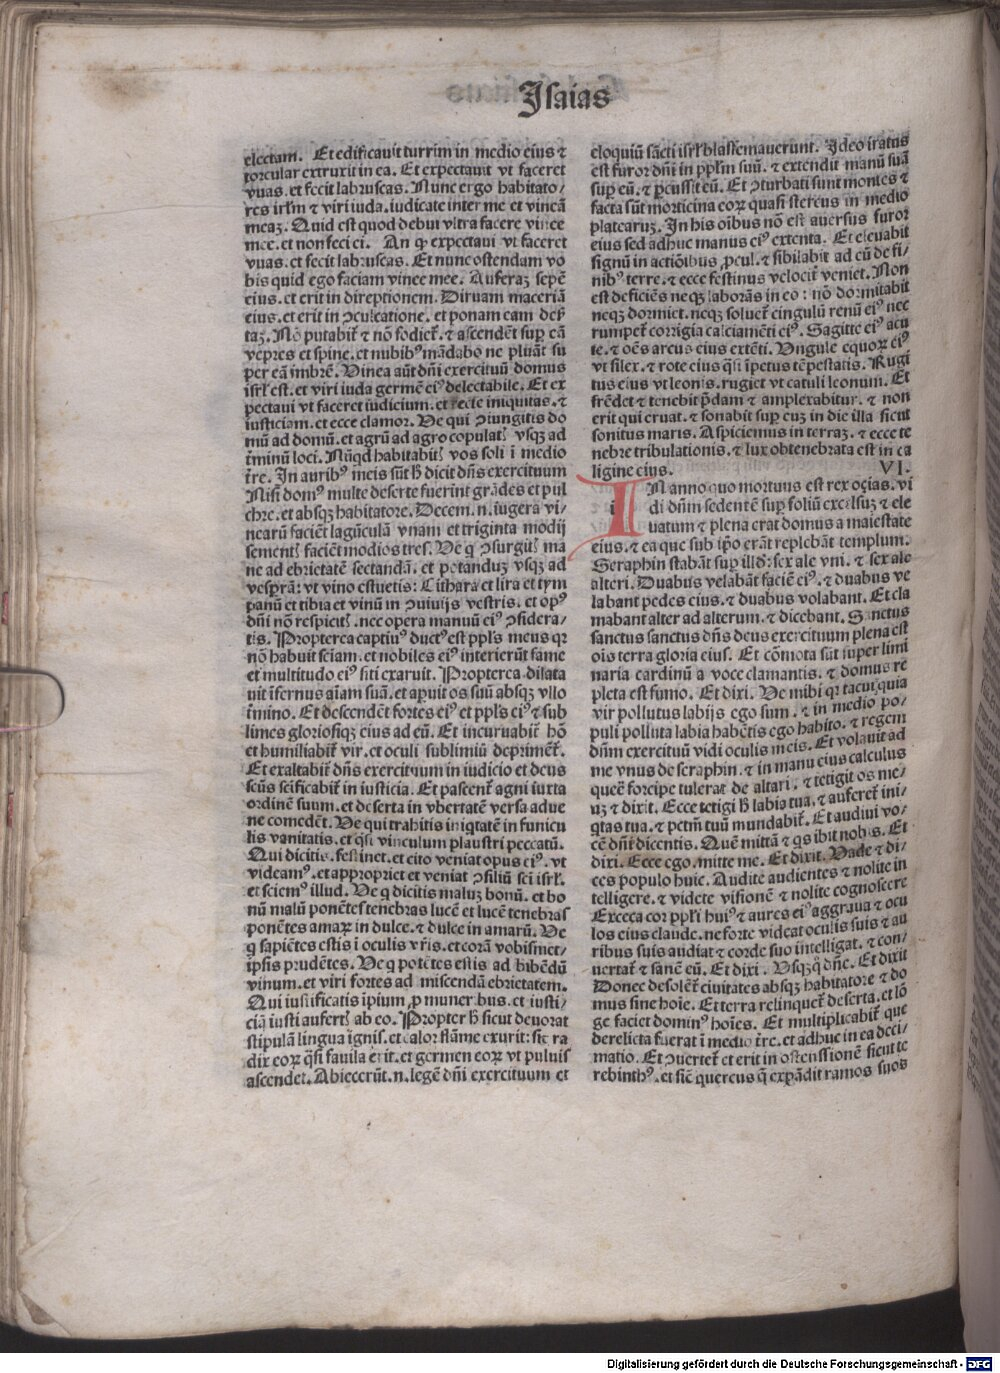 Isaias
electam. Et edificauit turrim in medio eius ⁊
torcular extruxit in ea. Et expectauit vt faceret
vuas. et fecit labruscas. Nunc ergo habitato/
res irlm̄ ⁊ viri iuda. iudicate inter me et vineā
meaꝫ. Quid est quod debui vltra facere vinee
mee. et non feci ei. An ꝙ expectaui vt faceret
vuas. et fecit labruscas. Et nunc ostendam vo
bis quid ego faciam vinee mee. Auferaꝫ sepē
eius. et erit in direptionem. Diruam maceriā
eius. et erit in ↄculcatione. et ponam eam deser
taꝫ. Nō putabit᷑ ⁊ nō fodiet᷑. ⁊ ascendēt suꝑ eā
vepres et spine. et nubibꝰ mādabo ne pluāt su
per eā imbrē. Vinea aūt dn̄i exercituū domus
isrl̓ est. et viri iuda germē eiꝰ delectabile. Et ex
pectaui vt faceret iudicium. et ecce iniquitas. ⁊
iusticiam. et ecce clamor. Ve qui ↄiungitis do
mū ad domū. et agrū ad agro copulatꝭ vsqꝫ ad
t̓minū loci. Nūqd habitabitꝭ vos soli ī medio
t̓re. In auribꝰ meis sūt h̄ dicit dn̄s exercituum
Nisi domꝰ multe deserte fuerint grādes et pul
chre. et absqꝫ habitatore. Decem. n. iugera vi/
nearū faciēt lagūculā vnam et triginta modij
sementꝭ faciēt modios tres. Ve q̓ ↄsurgitꝭ ma
ne ad ebrietatē sectandā. et potanduꝫ vsqꝫ ad
vesꝑā: vt vino estuetis: Cithara et lira et tym
panū et tibia et vinū in ↄuiuijs vestris. et opꝰ
dn̄i nō respicitꝭ. nec opera manuū eiꝰ ↄsidera/
tis. Propterea captiuꝰ ductꝰ est ppl̓s meus qꝛ
nō habuit sciam. et nobiles eiꝰ interierūt fame
et multitudo eiꝰ siti exaruit. Propterea dilata
uit īfernus aīam suā. et apuit os suū absqꝫ vllo
t̓mino. Et descendēt fortes eiꝰ et ppl̓s eiꝰ ⁊ sub
limes gloriosiqꝫ eius ad eū. Et incuruabit᷑ hō
et humiliabit᷑ vir. et oculi sublimiū deprimēt᷑.
Et exaltabit᷑ dn̄s exercituum in iudicio et deus
scūs scificabit᷑ in iusticia. Et pascent᷑ agni iuxta
ordinē suum. et deserta in vbertatē versa adue
ne comedēt. Ve qui trahitis iniqtatē in funicu
lis vanitatis. et qsi vinculum plaustri peccatū.
Qui dicitis. festinet. et cito veniat opus eiꝰ. vt
videamꝰ. et appropriet et veniat ↄsiliū sci isrl̓.
et sciemꝰ illud. Ve q̓ dicitis maluꝫ bonū. et bo
nū malū ponētes tenebras lucē et lucē tenebras
ponētes amaꝝ in dulce. ⁊ dulce in amarū. Ve
q̓ sapiētes estis ī oculis vr̄is. et corā vobismet/
ip̄sis prudētes. Ve q̓ potētes estis ad bibēdū
vinum. et viri fortes ad miscendā ebrietatem.
Qui iustificatis ipium ꝓ muneribus. et iusti/
ciā iusti aufertꝭ ab eo. Propter h̄ sicut deuorat
stipulā lingua ignis. et calor flāme exurit: sic ra
dix eoꝝ qsi fauila erit. et germen eoꝝ vt puluis
ascendet. Abiecerūt. n. legē dn̄i exercituum et
eloquiū sācti isrl̓ blasfemauerunt. Ideo iratus
est furor dn̄i in ppl̓m suū. ⁊ extendit manū suā
suꝑ eū. ⁊ ꝑcussit eū. Et ↄturbati sunt montes ⁊
facta sūt morticina eoꝝ quasi stercus in medio
platearuꝫ. In his oībus nō est auersus furor
eius sed adhuc manus eiꝰ extenta. Et eleuabit
signū in nactiōibus ꝓcul. ⁊ sibilabit ad eū de fi/
nibꝰ terre. ⁊ ecce festinus velocit᷑ veniet. Non
est deficiēs neqꝫ laborās in eo: nō dormitabit
neqꝫ dormiet. neqꝫ soluet᷑ cingulū renū eiꝰ nec
rumpet᷑ corrigia calciamēti eiꝰ. Sagitte eiꝰ acu
te. ⁊ oēs arcus eius extēti. Vngule equoꝝ eiꝰ
vt silex. ⁊ rote eius qsi īpetus tēpestatis. Rugi
tus eius vt leonis. rugiet vt catuli leonum. Et
frēdet ⁊ tenebit p̄dam ⁊ amplexabitur. ⁊ non
erit qui eruat. ⁊ sonabit suꝑ euꝫ in die illa sicut
sonitus maris. Aspiciemus in terraꝫ. ⁊ ecce te
nebre tribulationis. ⁊ lux obtenebrata est in ca
ligine eius. VI.
IN anno quo mortuus est rex oçias. vi
di dn̄m sedentē suꝑ soliū excelsuꝫ ⁊ ele
uatum ⁊ plena erat domus a maiestate
eius. ⁊ ea que sub ip̄o erāt replebāt templum.
Seraphin stabāt suꝑ illd: sex ale vni. ⁊ sex ale
alteri. Duabus velabāt faciē eiꝰ. ⁊ duabus ve
labant pedes eius. ⁊ duabus volabant. Et cla
mabant alter ad alterum. ⁊ dicebant. Sanctus
sanctus sanctus dn̄s deus exercituum plena est
oīs terra gloria eius. Et cōmota sūt super limi
naria cardinū a voce clamantis. ⁊ domus re
pleta est fumo. Et dixi. Ve mihi qꝛ tacui, quia
vir pollutus labijs ego sum. ⁊ in medio po/
puli polluta labia habētis ego habito. ⁊ regem
dn̄m exercituū vidi oculis meis. Et volauit ad
me vnus de seraphin. ⁊ in manu eius calculus
quē forcipe tulerat de altari. ⁊ tetigit os me/
uꝫ ⁊ dixit. Ecce tetigi h̄ labia tua. ⁊ auferet᷑ ini/
qtas tua. ⁊ petm̄ tuū mundabit᷑. Et audiui vo/
cē dn̄i dicentis. Quē mittā ⁊ qs ibit nobis. Et
dixi. Ecce ego. mitte me. Et dixit. Vade ⁊ di/
ces populo huic. Audite audientes ⁊ nolite in
telligere. ⁊ videte visionē ⁊ nolite cognoscere
Exceca cor ppl̓i huiꝰ ⁊ aures eiꝰ aggraua ⁊ ocu
los eius claude. ne forte videat oculis suis ⁊ au
ribus suis audiat ⁊ corde suo intelligat. ⁊ con/
uertat᷑ ⁊ sanē eū. Et dixi. Vsqꝫ q̊ dn̄e. Et dixit
Donec desolēt᷑ ciuitates absqꝫ habitatore ⁊ do
mus sine hoīe. Et terra relinquet᷑ deserta. et lō
ge faciet dominꝰ hoīes. Et multiplicabit᷑ que
derelicta fuerat ī medio t̓re. et adhuc in ea deci/
matio. Et ↄuertet᷑ et erit in ostensionē sicut te
rebinthꝰ. et sic̄ quercus q̄ expādit ramos suos
Digitalisierung gefördert durch die Deutsche Forschungsgemeinschaft - DFG